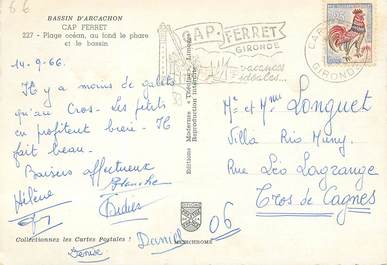 BASSIN D'ARCACHON
CAP FERRET
227 - Plage océan, au fond le phare
et le bassin
14-9-66.
Il y a moins de galets
qu'au Cros. Les ptits
en profitent bien. Il
fait beau.
Baisers affectueux
Hélène
Blanche
Didier
Daniel
Denise
Collectionnez les Cartes Postales :
MEXICHROME
Editions Modernes "Théojac" Limoges
Reproduction interdite
CAP-FERRET
GIRONDE
vacances
idéales...
CAP
GIRONDE
Mr et Mme Longuet
Villa Rio Muny
Rue Léo Lagrange
Cros de Cagnes
06